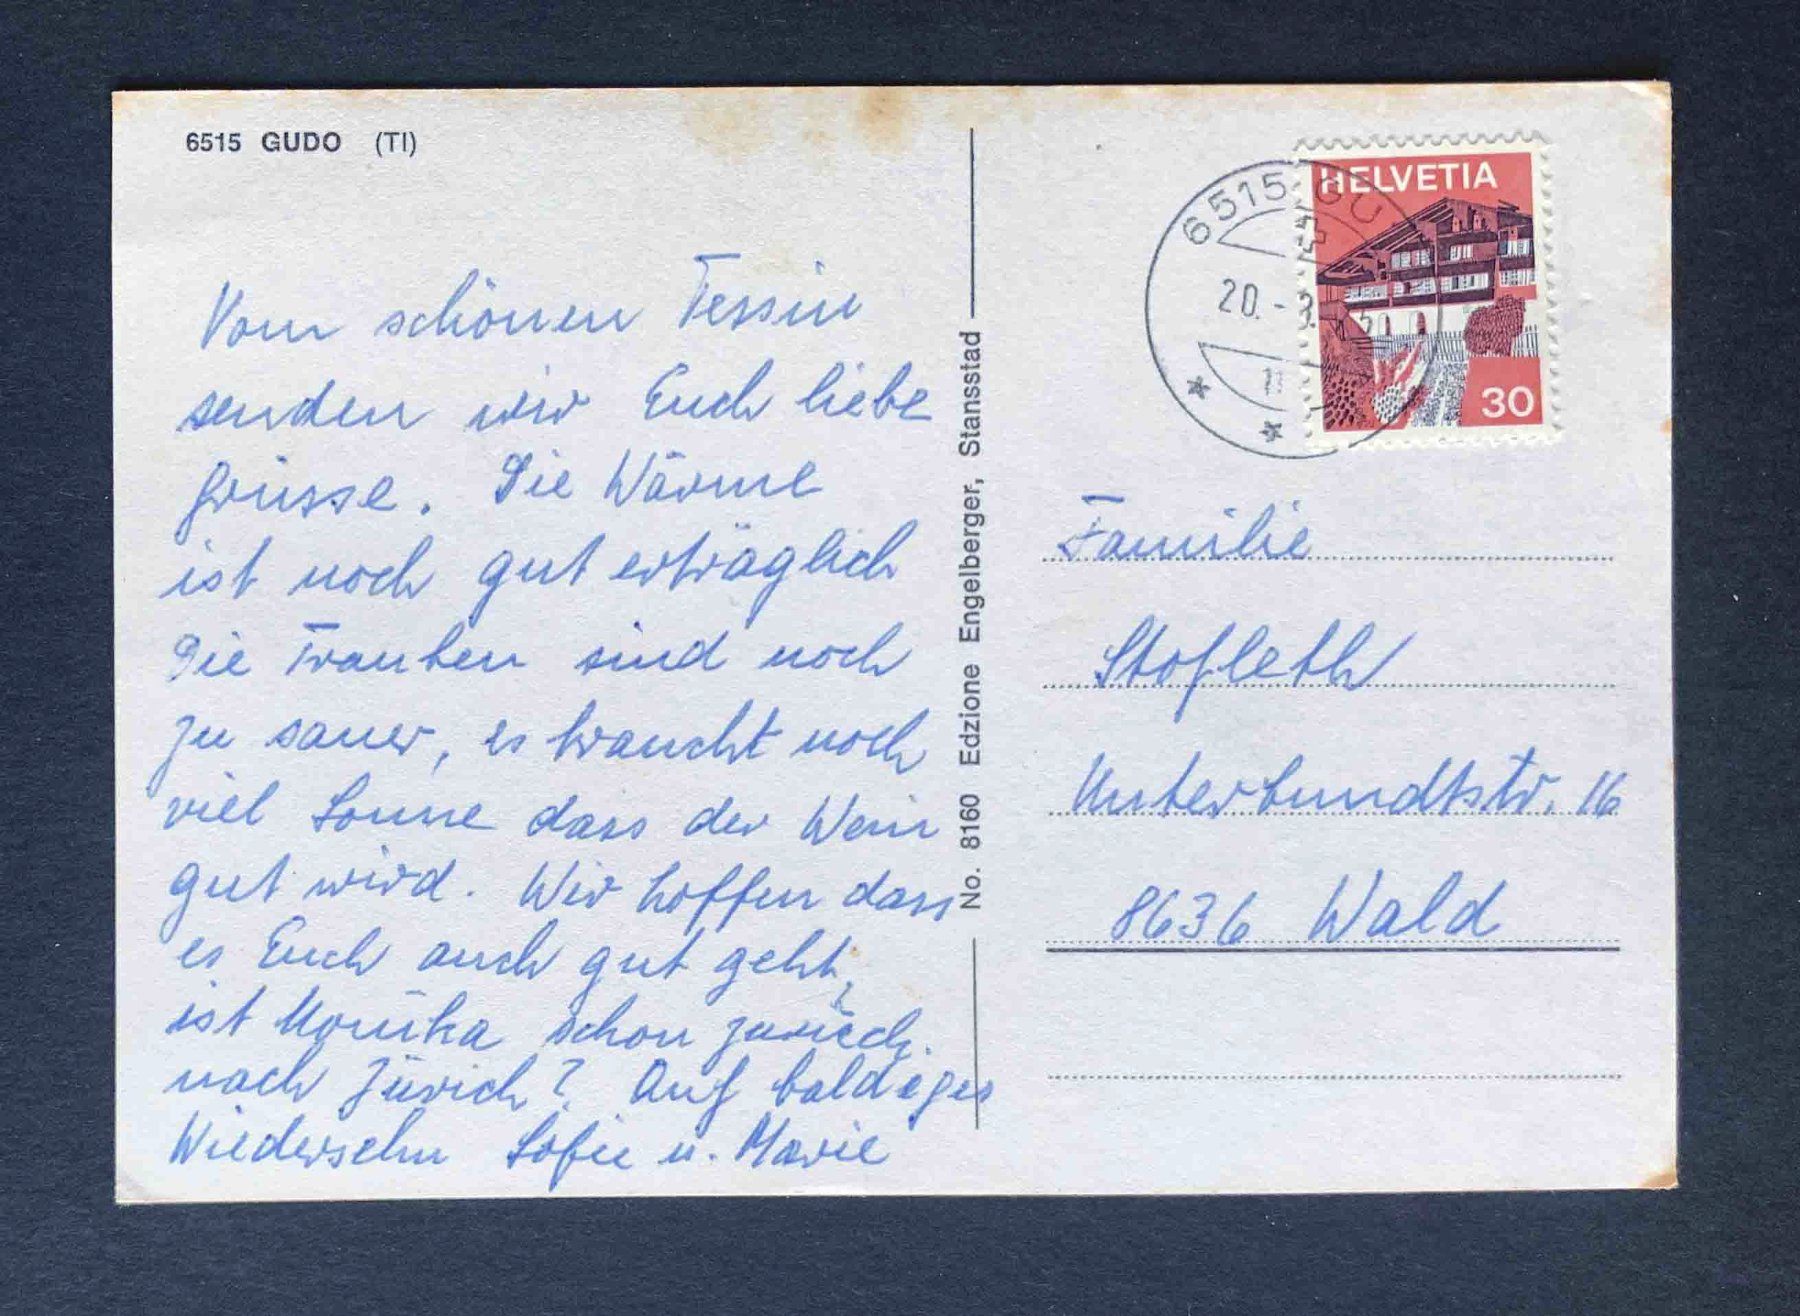 6515 GUDO (TI)
Vom schönen Tessin
senden wir Euch liebe
Grüsse. Die Wärme
ist noch gut erträglich
Die Trauben sind noch
zu sauer, es braucht noch
viel Sonne dass der Wein
gut wird. Wir hoffen dass
es Euch auch gut geht,
ist Monika schon zurück
nach Zürich? Auf baldiges
Wiedersehn Sofie u. Marie
No. 8160 Edzione Engelberger, Stansstad
6515 GU
20.-
HELVETIA
30
Familie
Stofleth
Unterbundtstr. 16
8636 Wald